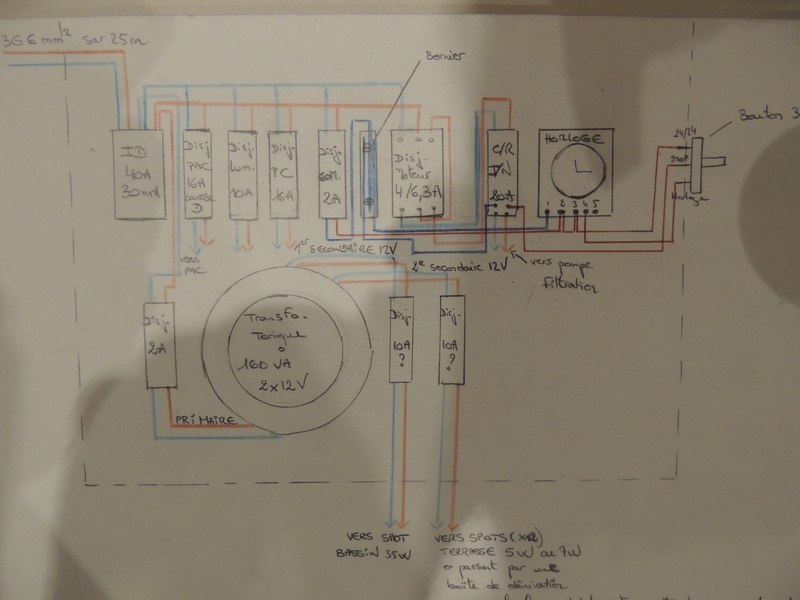 3G6 mm² sur 25m
Bornier
Bouton 3
I.D.
40A
30mA
Disj.
PAC
16A
COURBE
D
Disj.
Lum.
10A
Disj.
PC
16A
Disj.
COM.
2A
Disj.
Moteur
4/6,3A
C/R
J/N
20A
HORLOGE
1 2 3 4 5
24/24
STOP
Horloge
VERS
PAC
1er SECONDAIRE 12V
2e secondaire 12V
vers pompe
filtration
Disj.
2A
Transfo.
Torique
160 VA
2x12V
PRIMAIRE
Disj.
10A
?
Disj.
10A
?
VERS SPOT
BASSIN 35W
VERS SPOTS
TERRASSE 5W ou 7W
en passant par une
boîte de dérivation